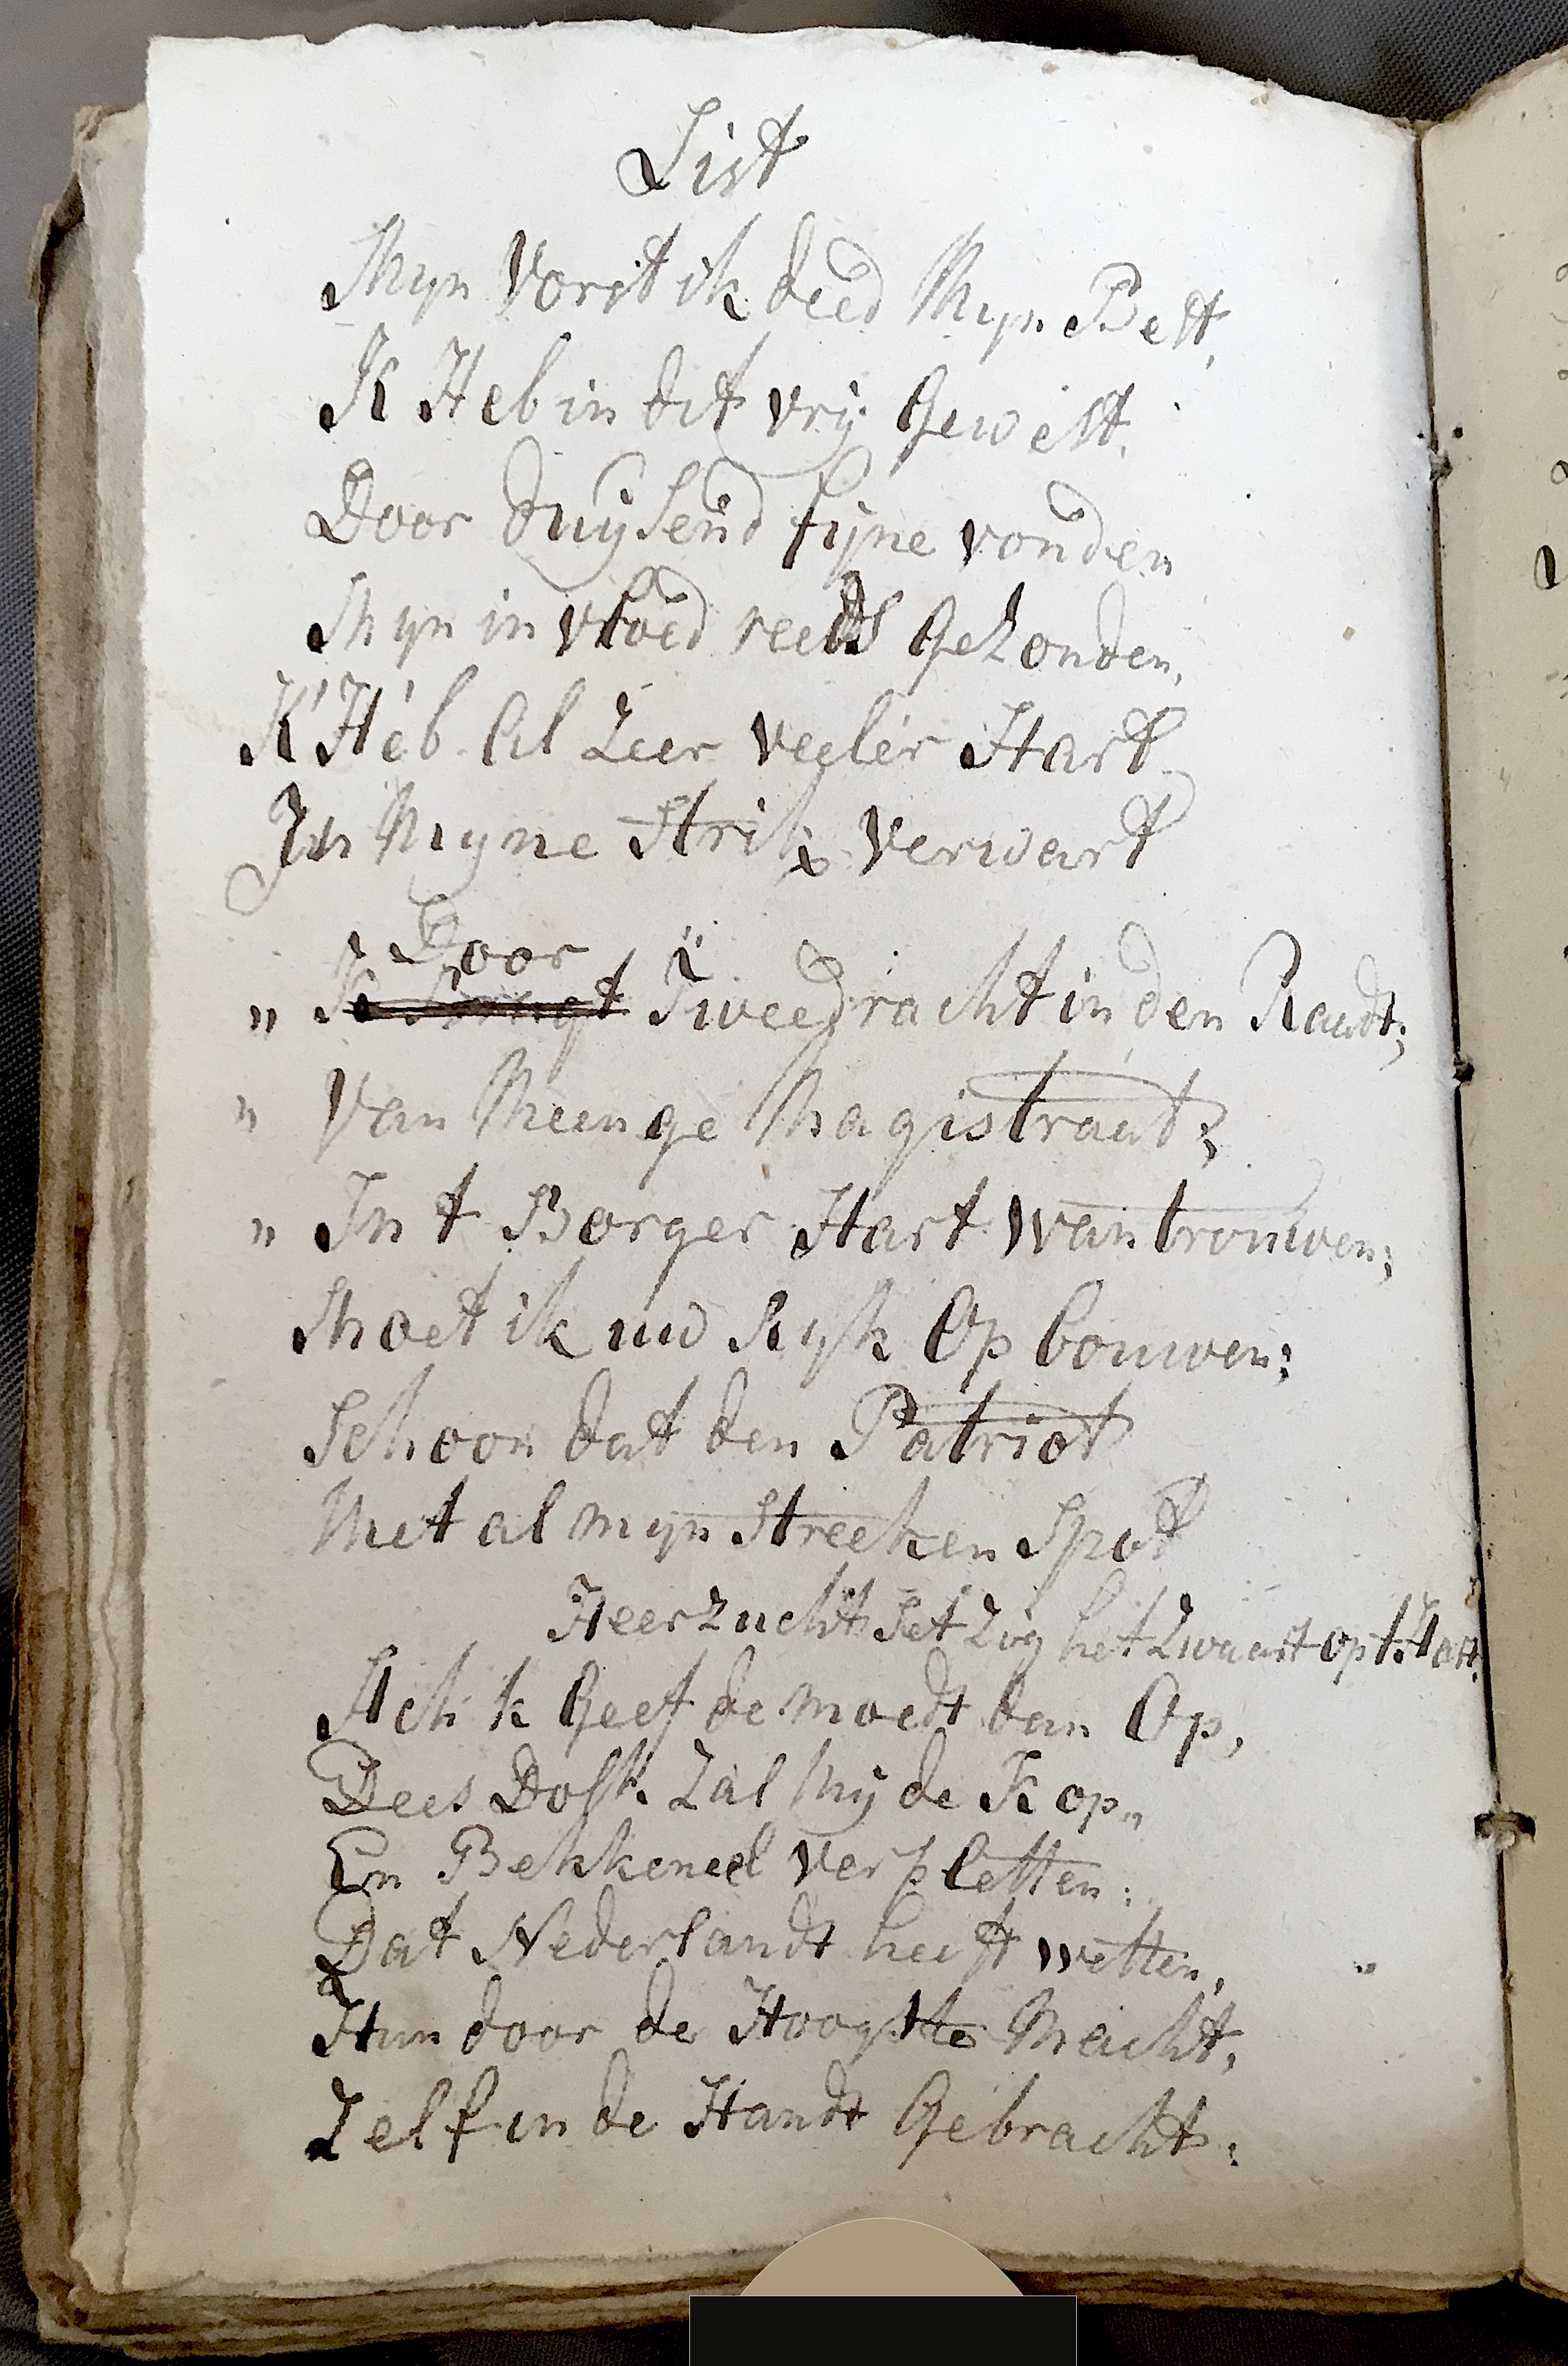 List
Myn Vorst ik deed Myn Best,
K Heb in dit vrij Gewest.
Door duijsend fyne vonden
Myn invloed reeds Gezonden,
K' Heb Al Zeer veeler Hart
In Myne Strikx Verwart
Door
„ Ik Brengt Tweedracht in den Raadt;
„ Van Meenge Magistraat;
„ In t Borger Hart Wantrouwen;
Moet ik uw Ryk Op bouwen;
Schoon dat den Patriot
Met al myn Streeken Spot
Heerzucht Set Zig het Zwaart op t Hart.
Ach ik Geef de moedt dan Op,
Dees Dolk Zal My de Kop„
En Bekkeneel verpletten:
Dat Nederlandt heeft wetten,
Hun door de Hoogste Macht,
Zelf in de Handt Gebracht: